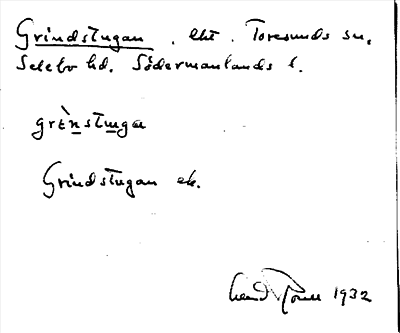 Grindstugan . lht . Toresunds sn.
Selebo hd. Södermanlands l.
grɛ̀nstuga
Grindstugan ek.
1932